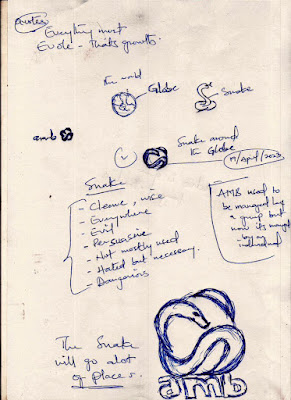 Quotes
Everything must
Evole - Thats growth.
The world
Globe
Snake
amb
Snake around
the Globe
11/April/2023
Snake
- Cleave, wise
- Everywhere
- Evil
- Persuasive
- Not mostly used
- Hated but necessary.
- Dangerous
AMB used to
be managed by
a group but
now its
by an
individual
The Snake
will go alot
of places.
amb